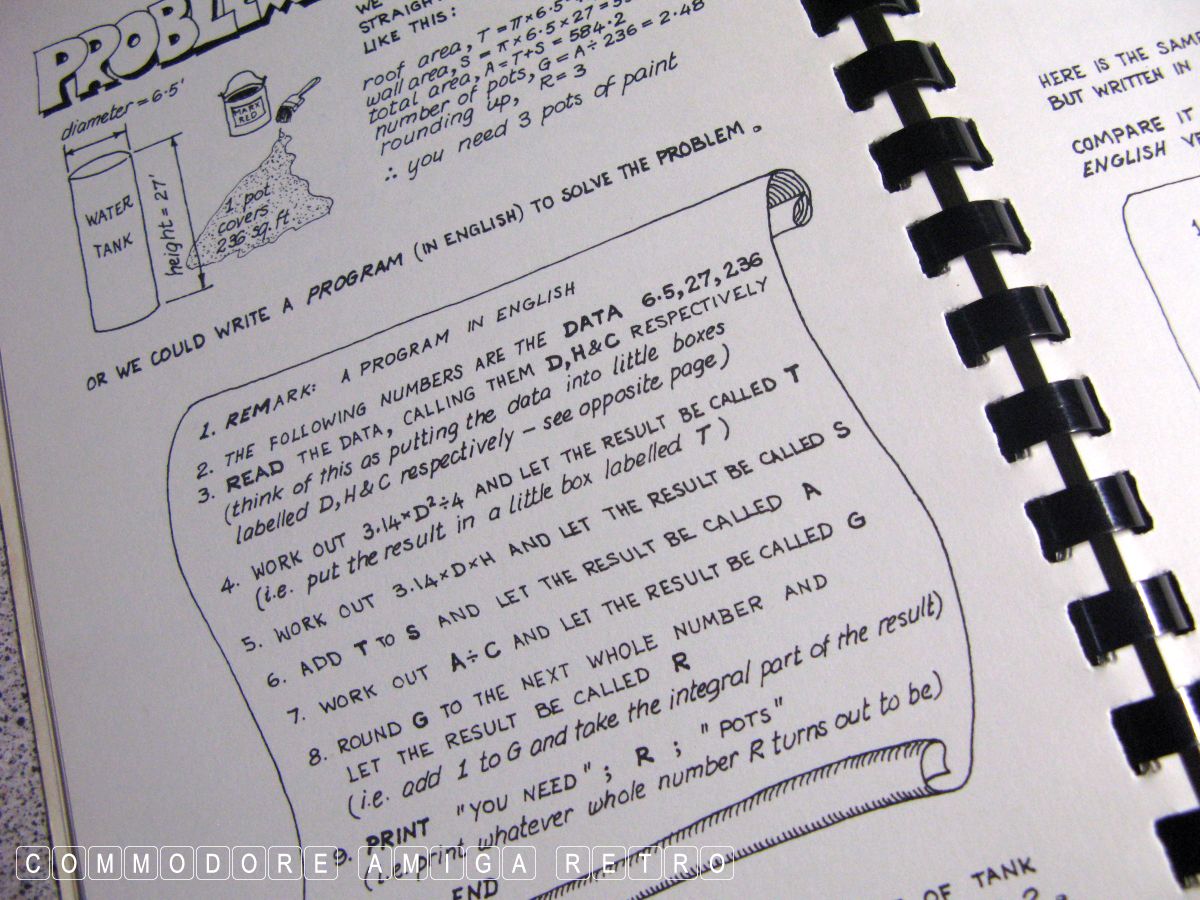 PROBLEM
WE
STRAIGHT
LIKE THIS:
roof area, T = π×6·5
wall area, S = π×6·5×27 =
total area, A = T+S = 584·2
number of pots, G = A÷236 = 2·48
rounding up, R = 3
∴ you need 3 pots of paint
diameter = 6·5'
MARX
RED
WATER
TANK
height = 27'
1 pot
covers
236 sq. ft
OR WE COULD WRITE A PROGRAM (IN ENGLISH) TO SOLVE THE PROBLEM.
1. REMARK: A PROGRAM IN ENGLISH
2. THE FOLLOWING NUMBERS ARE THE DATA 6·5, 27, 236
3. READ THE DATA, CALLING THEM D, H & C RESPECTIVELY
(think of this as putting the data into little boxes
labelled D, H & C respectively – see opposite page)
4. WORK OUT 3·14×D²÷4 AND LET THE RESULT BE CALLED T
(i.e. put the result in a little box labelled T)
5. WORK OUT 3·14×D×H AND LET THE RESULT BE CALLED S
6. ADD T TO S AND LET THE RESULT BE CALLED A
7. WORK OUT A÷C AND LET THE RESULT BE CALLED G
8. ROUND G TO THE NEXT WHOLE NUMBER AND
LET THE RESULT BE CALLED R
(i.e. add 1 to G and take the integral part of the result)
9. PRINT "YOU NEED"; R; "POTS"
(i.e. print whatever whole number R turns out to be)
END
OF TANK
?
HERE IS THE SAME
BUT WRITTEN IN
COMPARE IT
ENGLISH
1
COMMODORE AMIGA RETRO